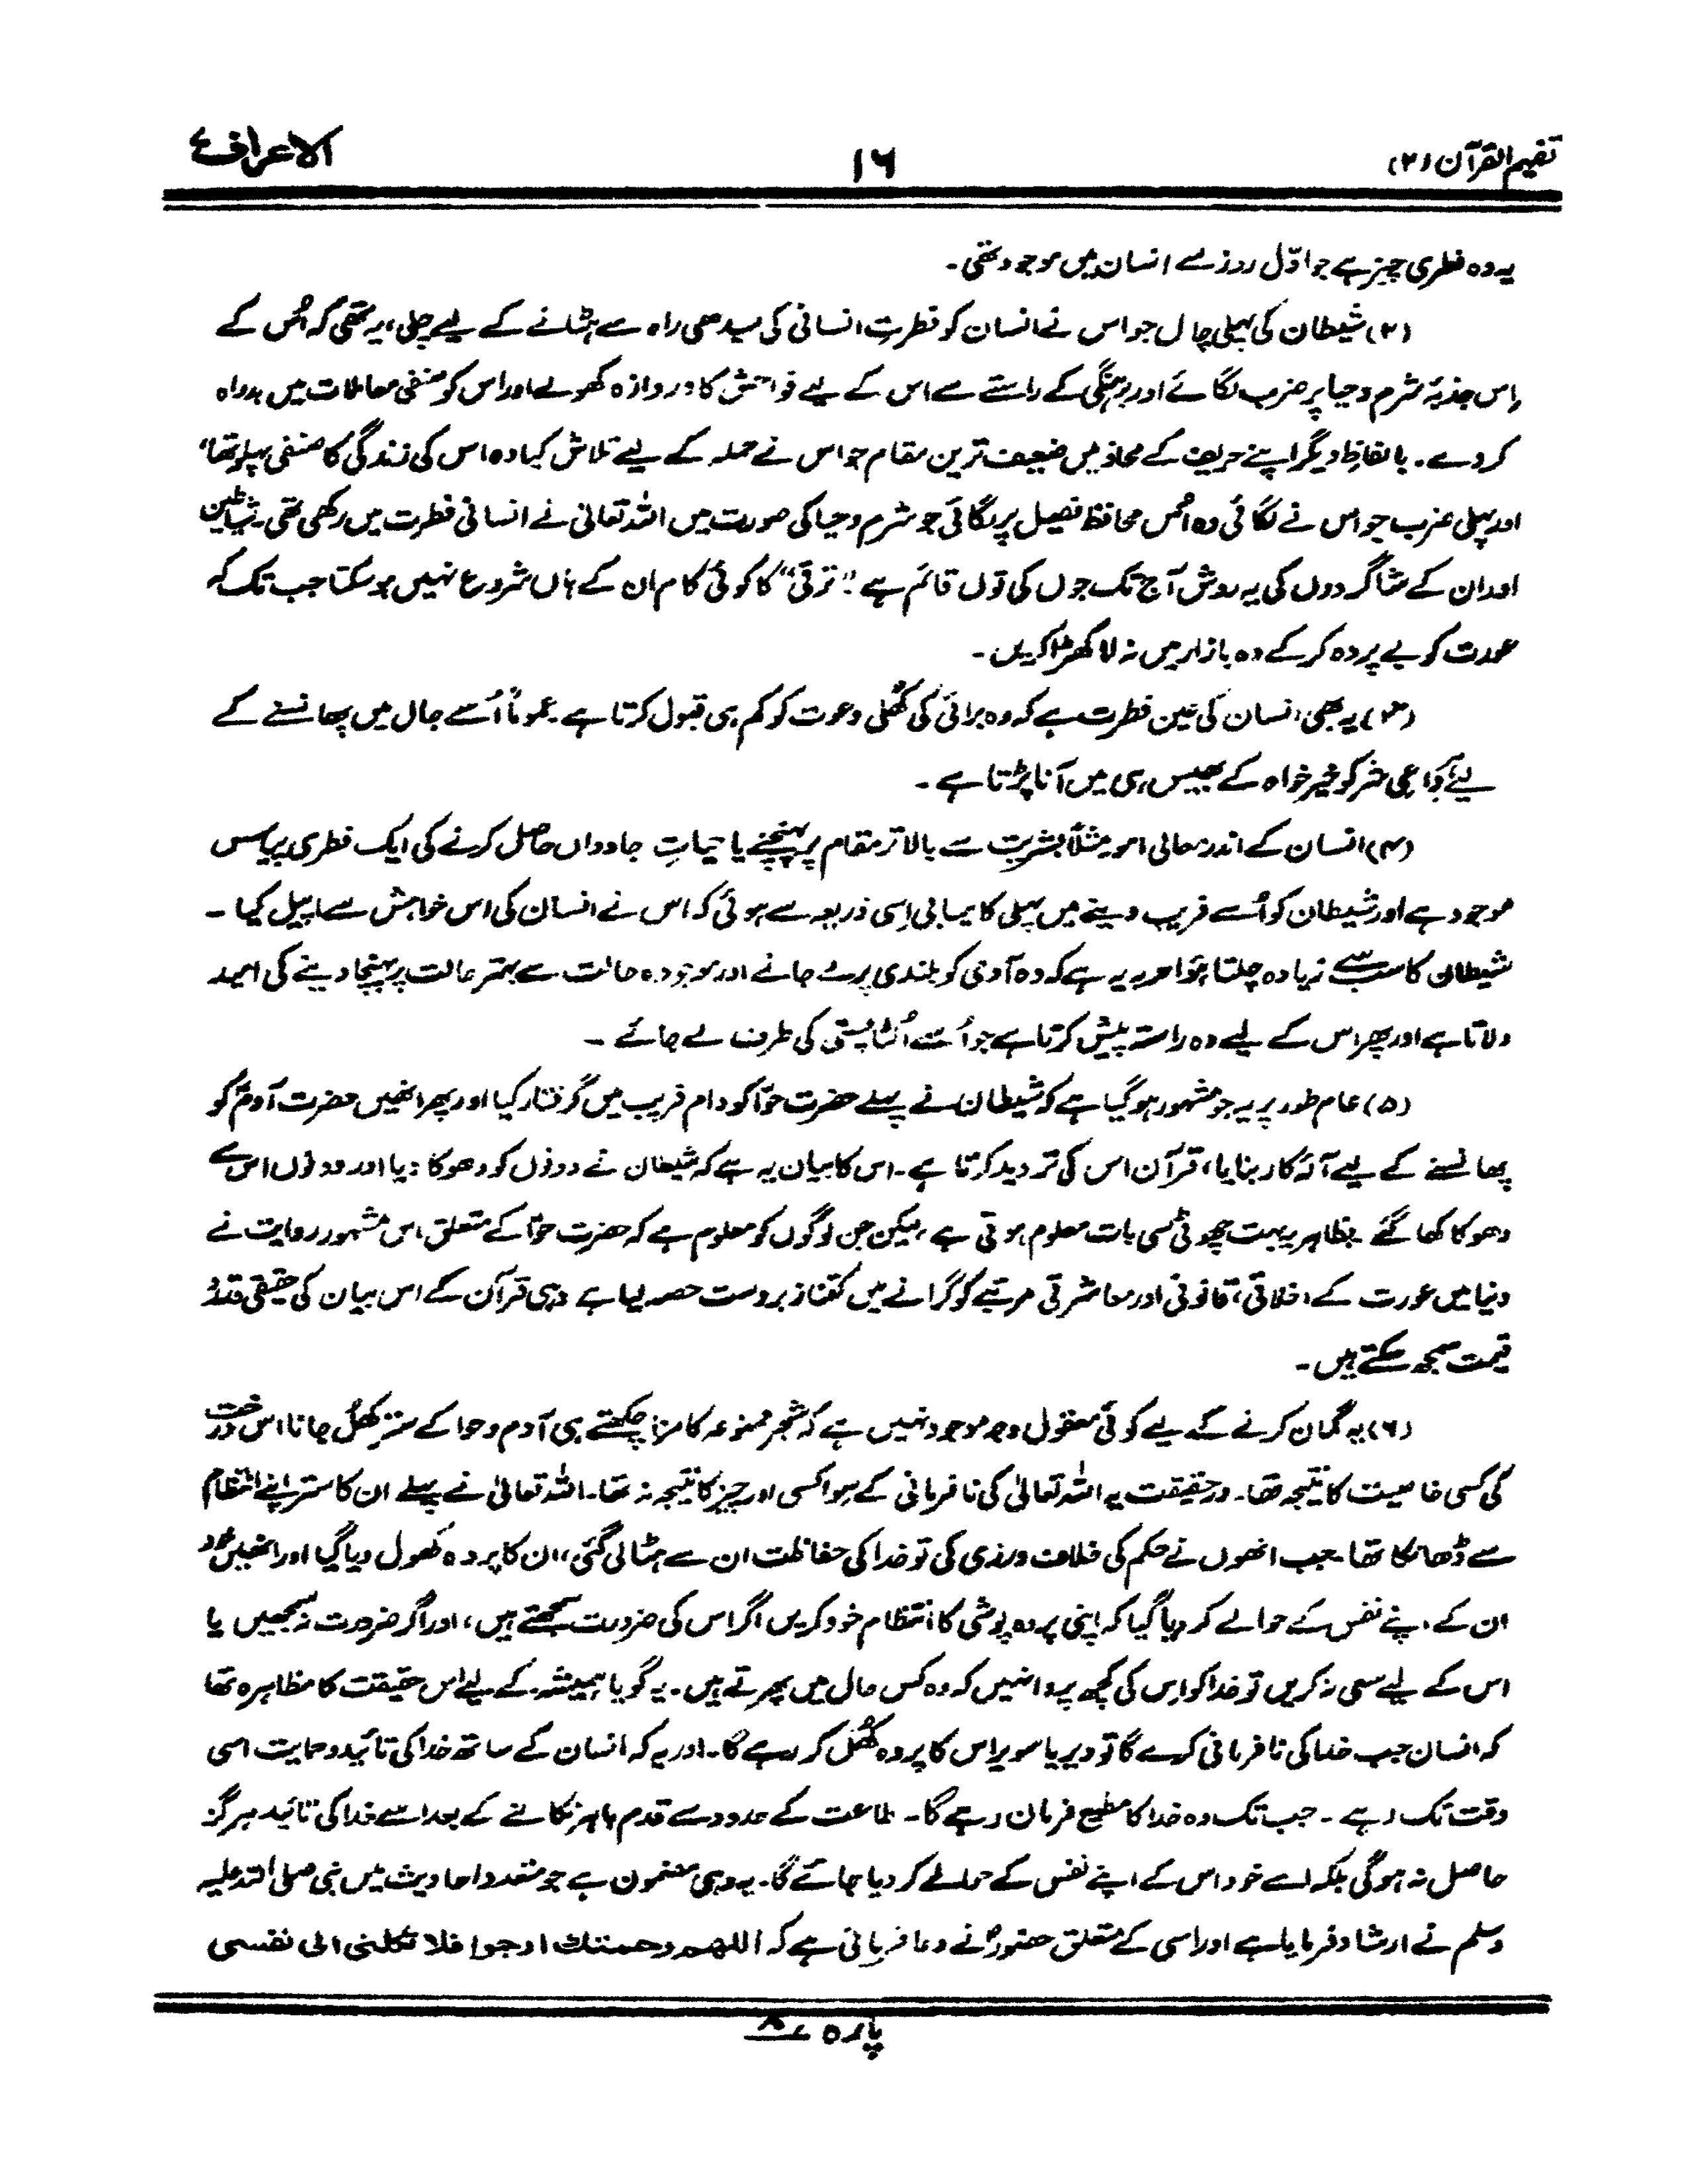 تفہیم القرآن (۲)
۱۶
الاعراف ۷
یہ وہ فطری چیز ہے جو اوّل روز سے انسان میں موجود تھی۔
(۲) شیطان کی پہلی چال جو اس نے انسان کو فطرتِ انسانی کی سیدھی راہ سے ہٹانے کے لیے چلی، یہ تھی کہ اُس کے
اِس جذبۂ شرم و حیا پر ضرب لگائے اور برہنگی کے راستے سے اس کے لیے فواحش کا دروازہ کھولے اور اس کو صنفی معاملات میں بدراہ
کر دے۔ بالفاظِ دیگر اپنے حریف کے محاذ میں ضعیف ترین مقام جو اس نے حملہ کے لیے تلاش کیا وہ اس کی زندگی کا صنفی پہلو تھا،
اور پہلی ضرب جو اس نے لگائی وہ اُس محافظ فصیل پر لگائی جو شرم و حیا کی صورت میں اللہ تعالیٰ نے انسانی فطرت میں رکھی تھی۔ شیاطین
اور ان کے شاگردوں کی یہ روش آج تک جوں کی توں قائم ہے۔ ”ترقی“ کا کوئی کام ان کے ہاں شروع نہیں ہو سکتا جب تک کہ
عورت کو بے پردہ کر کے وہ بازار میں نہ لا کھڑا کریں۔
(۳) یہ بھی انسان کی عین فطرت ہے کہ وہ برائی کی کھُلی دعوت کو کم ہی قبول کرتا ہے۔ عموماً اُسے جال میں پھانسنے کے
لیے داعیِ شر کو خیر خواہ کے بھیس ہی میں آنا پڑتا ہے۔
(۴) انسان کے اندر معالی امور مثلاً بشریت سے بالاتر مقام پر پہنچنے یا حیاتِ جاوداں حاصل کرنے کی ایک فطری پیاس
موجود ہے اور شیطان کو اُسے فریب دینے میں پہلی کامیابی اِسی ذریعہ سے ہوئی کہ اس نے انسان کی اس خواہش سے اپیل کیا۔
شیطان کا سب سے زیادہ چلتا ہوا حربہ یہ ہے کہ وہ آدمی کو بلندی پر لے جانے اور موجودہ حالت سے بہتر حالت پر پہنچا دینے کی امید
دلاتا ہے اور پھر اس کے لیے وہ راستہ پیش کرتا ہے جو اُسے اُلٹا پستی کی طرف لے جائے۔
(۵) عام طور پر یہ جو مشہور ہو گیا ہے کہ شیطان نے پہلے حضرت حوّا کو دام فریب میں گرفتار کیا اور پھر انھیں حضرت آدمؑ کو
پھانسنے کے لیے آلۂ کار بنایا، قرآن اس کی تردید کرتا ہے۔ اس کا بیان یہ ہے کہ شیطان نے دونوں کو دھوکا دیا اور دونوں اس سے
دھوکا کھا گئے۔ بظاہر یہ بہت چھوٹی سی بات معلوم ہوتی ہے، لیکن جن لوگوں کو معلوم ہے کہ حضرت حوّا کے متعلق اس مشہور روایت نے
دنیا میں عورت کے اخلاقی، قانونی اور معاشرتی مرتبے کو گرانے میں کتنا زبردست حصہ لیا ہے وہی قرآن کے اس بیان کی حقیقی قدر و
قیمت سمجھ سکتے ہیں۔
(۶) یہ گمان کرنے کے لیے کوئی معقول وجہ موجود نہیں ہے کہ شجرِ ممنوعہ کا مزا چکھتے ہی آدم و حوا کے ستر کھُل جانا اس درخت
کی کسی خاصیت کا نتیجہ تھا۔ درحقیقت یہ اللہ تعالیٰ کی نافرمانی کے سوا کسی اور چیز کا نتیجہ نہ تھا۔ اللہ تعالیٰ نے پہلے ان کا ستر اپنے انتظام
سے ڈھانکا تھا۔ جب انھوں نے حکم کی خلاف ورزی کی تو خدا کی حفاظت ان سے ہٹا لی گئی، ان کا پردہ کھول دیا گیا اور انھیں خود
ان کے اپنے نفس کے حوالے کر دیا گیا کہ اپنی پردہ پوشی کا انتظام خود کریں اگر اس کی ضرورت سمجھتے ہیں، اور اگر ضرورت نہ سمجھیں یا
اس کے لیے سعی نہ کریں تو خدا کو اِس کی کچھ پروا نہیں کہ وہ کس حال میں پھرتے ہیں۔ یہ گویا ہمیشہ کے لیے اس حقیقت کا مظاہرہ تھا
کہ انسان جب خدا کی نافرمانی کرے گا تو دیر یا سویر اس کا پردہ کھُل کر رہے گا۔ اور یہ کہ انسان کے ساتھ خدا کی تائید و حمایت اسی
وقت تک رہے۔ جب تک وہ خدا کا مطیع فرمان رہے گا۔ طاعت کے حدود سے قدم باہر نکالنے کے بعد اسے خدا کی تائید ہرگز
حاصل نہ ہوگی بلکہ اسے خود اس کے اپنے نفس کے حوالے کر دیا جائے گا۔ یہ وہی مضمون ہے جو متعدد احادیث میں نبی صلی اللہ علیہ
وسلم نے ارشاد فرمایا ہے اور اسی کے متعلق حضورؐ نے دعا فرمائی ہے کہ اللھم رحمتك ارجوا فلا تکلنی الی نفسی
پارہ ۸